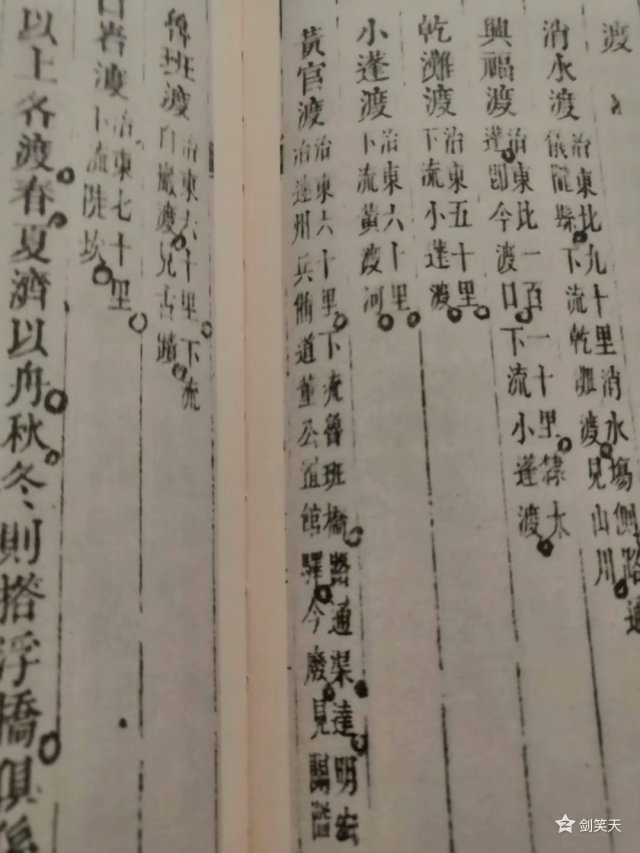 渡
消水渡 治東北九十里消水塲側路通
儀隴縣下流乾灘渡見山川
興福渡 治東北一百一十里隸太
蓬卽今渡口下流小蓬渡
乾灘渡 治東五十里
下流小蓬渡
小蓬渡 治東六十里
下流黃渡河
黃官渡 治東六十里下流魯班橋路通渠達明宏
治達州兵備道董公置館驛今廢見關
魯班渡 治東六十里下流
白巖渡見古蹟
白岩渡 治東七十里
下流陡坎
以上各渡春夏濟以舟秋冬則搭浮橋俱係
剑笑天